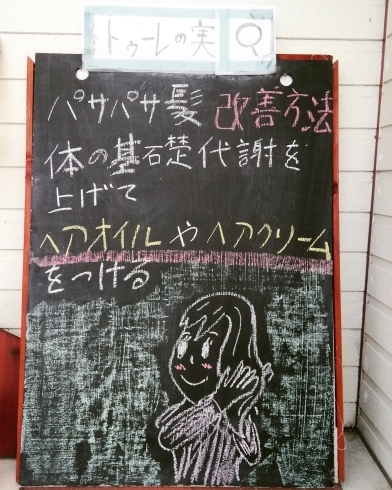 トゥーレの実
パサパサ髪 改善方法
体の基礎代謝を
上げて
ヘアオイルやヘアクリーム
をつける